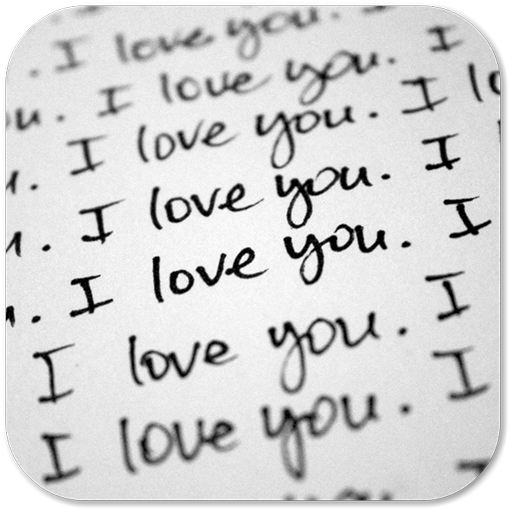 . I love you.
u. I love you. I
u. I love you. I lo
u. I love you. I
u. I love you. I
I love you. I
I love you. I
you